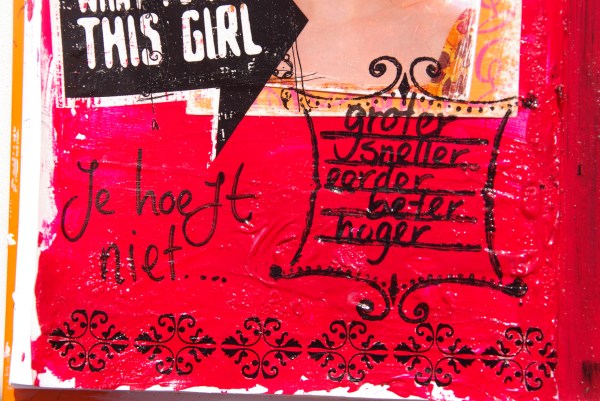 THIS GIRL
Je hoeft
niet....
groter
sneller
eerder
beter
hoger